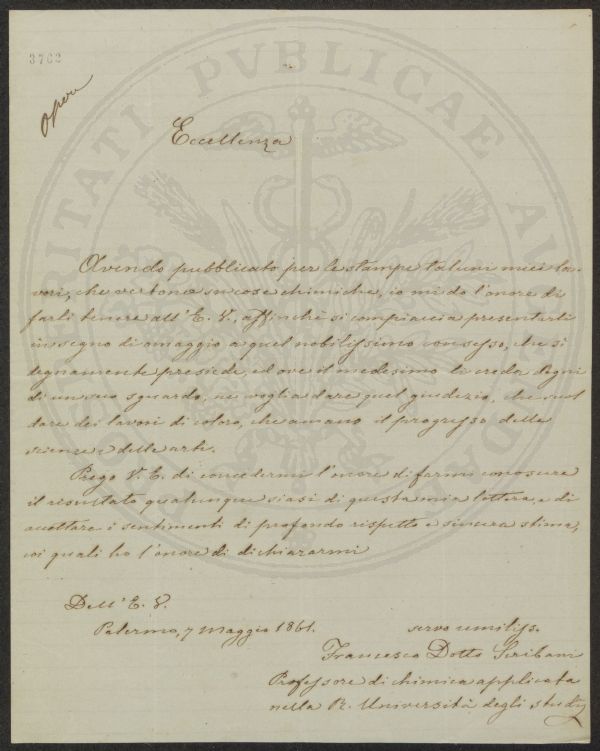 3762
Opere
Eccellenza
Avendo pubblicato per le stampe taluni miei la-
vori, che vertono su cose chimiche, io mi do l'onore di
farli tenere all'E. V., affinchè si compiaccia presentarli
in segno di omaggio a quel nobilissimo consesso, che sì
degnamente presiede, ed ove il medesimo li creda degni
di un suo sguardo, ne voglia dare quel giudizio, che suol
dare dei lavori di coloro, che amano il progresso delle
scienze e delle arti.
Prego V. E. di concedermi l'onore di farmi conoscere
il risultato qualunque siasi di questa mia lettera, e di
accettare i sentimenti di profondo rispetto e sincera stima,
coi quali ho l'onore di dichiararmi
Dell'E. V.
Palermo, 7 Maggio 1861.
servo umiliss.
Francesco Dotto Scribani
Professore di chimica applicata
nella R. Università degli studj
POSTERITATI PVBLICAE AVGENDAE